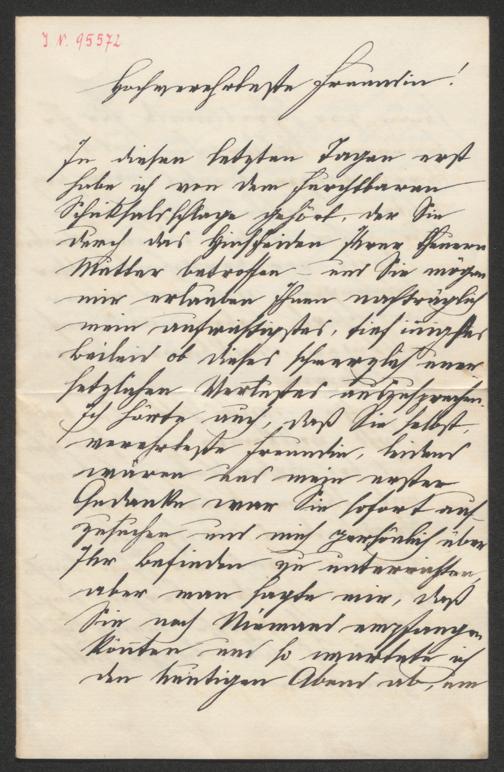 J. N. 95572
Hochverehrteste Freundin!
In diesen letzten Tagen erst
habe ich von dem furchtbaren
Schicksalsschlage gehört, der Sie
durch das Hinscheiden Ihrer theuern
Mutter betroffen – und Sie mögen
mir erlauben Ihnen nachträglich
mein aufrichtigstes, tief innigstes
Beileid ob dieses schmerzlich uner
setzlichen Verlustes auszusprechen.
Ich hörte auch, daß Sie selbst,
verehrteste Freundin, leidend
wären und mein erster
Gedanke war Sie sofort auf
zusuchen und mich persönlich über
Ihr Befinden zu unterrichten,
aber man sagte mir, daß
Sie noch Niemand empfangen
könnten und so wartete ich
den heutigen Abend ab, um